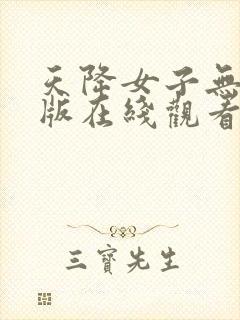 天降女子無
版在綫觀看
三寶先生